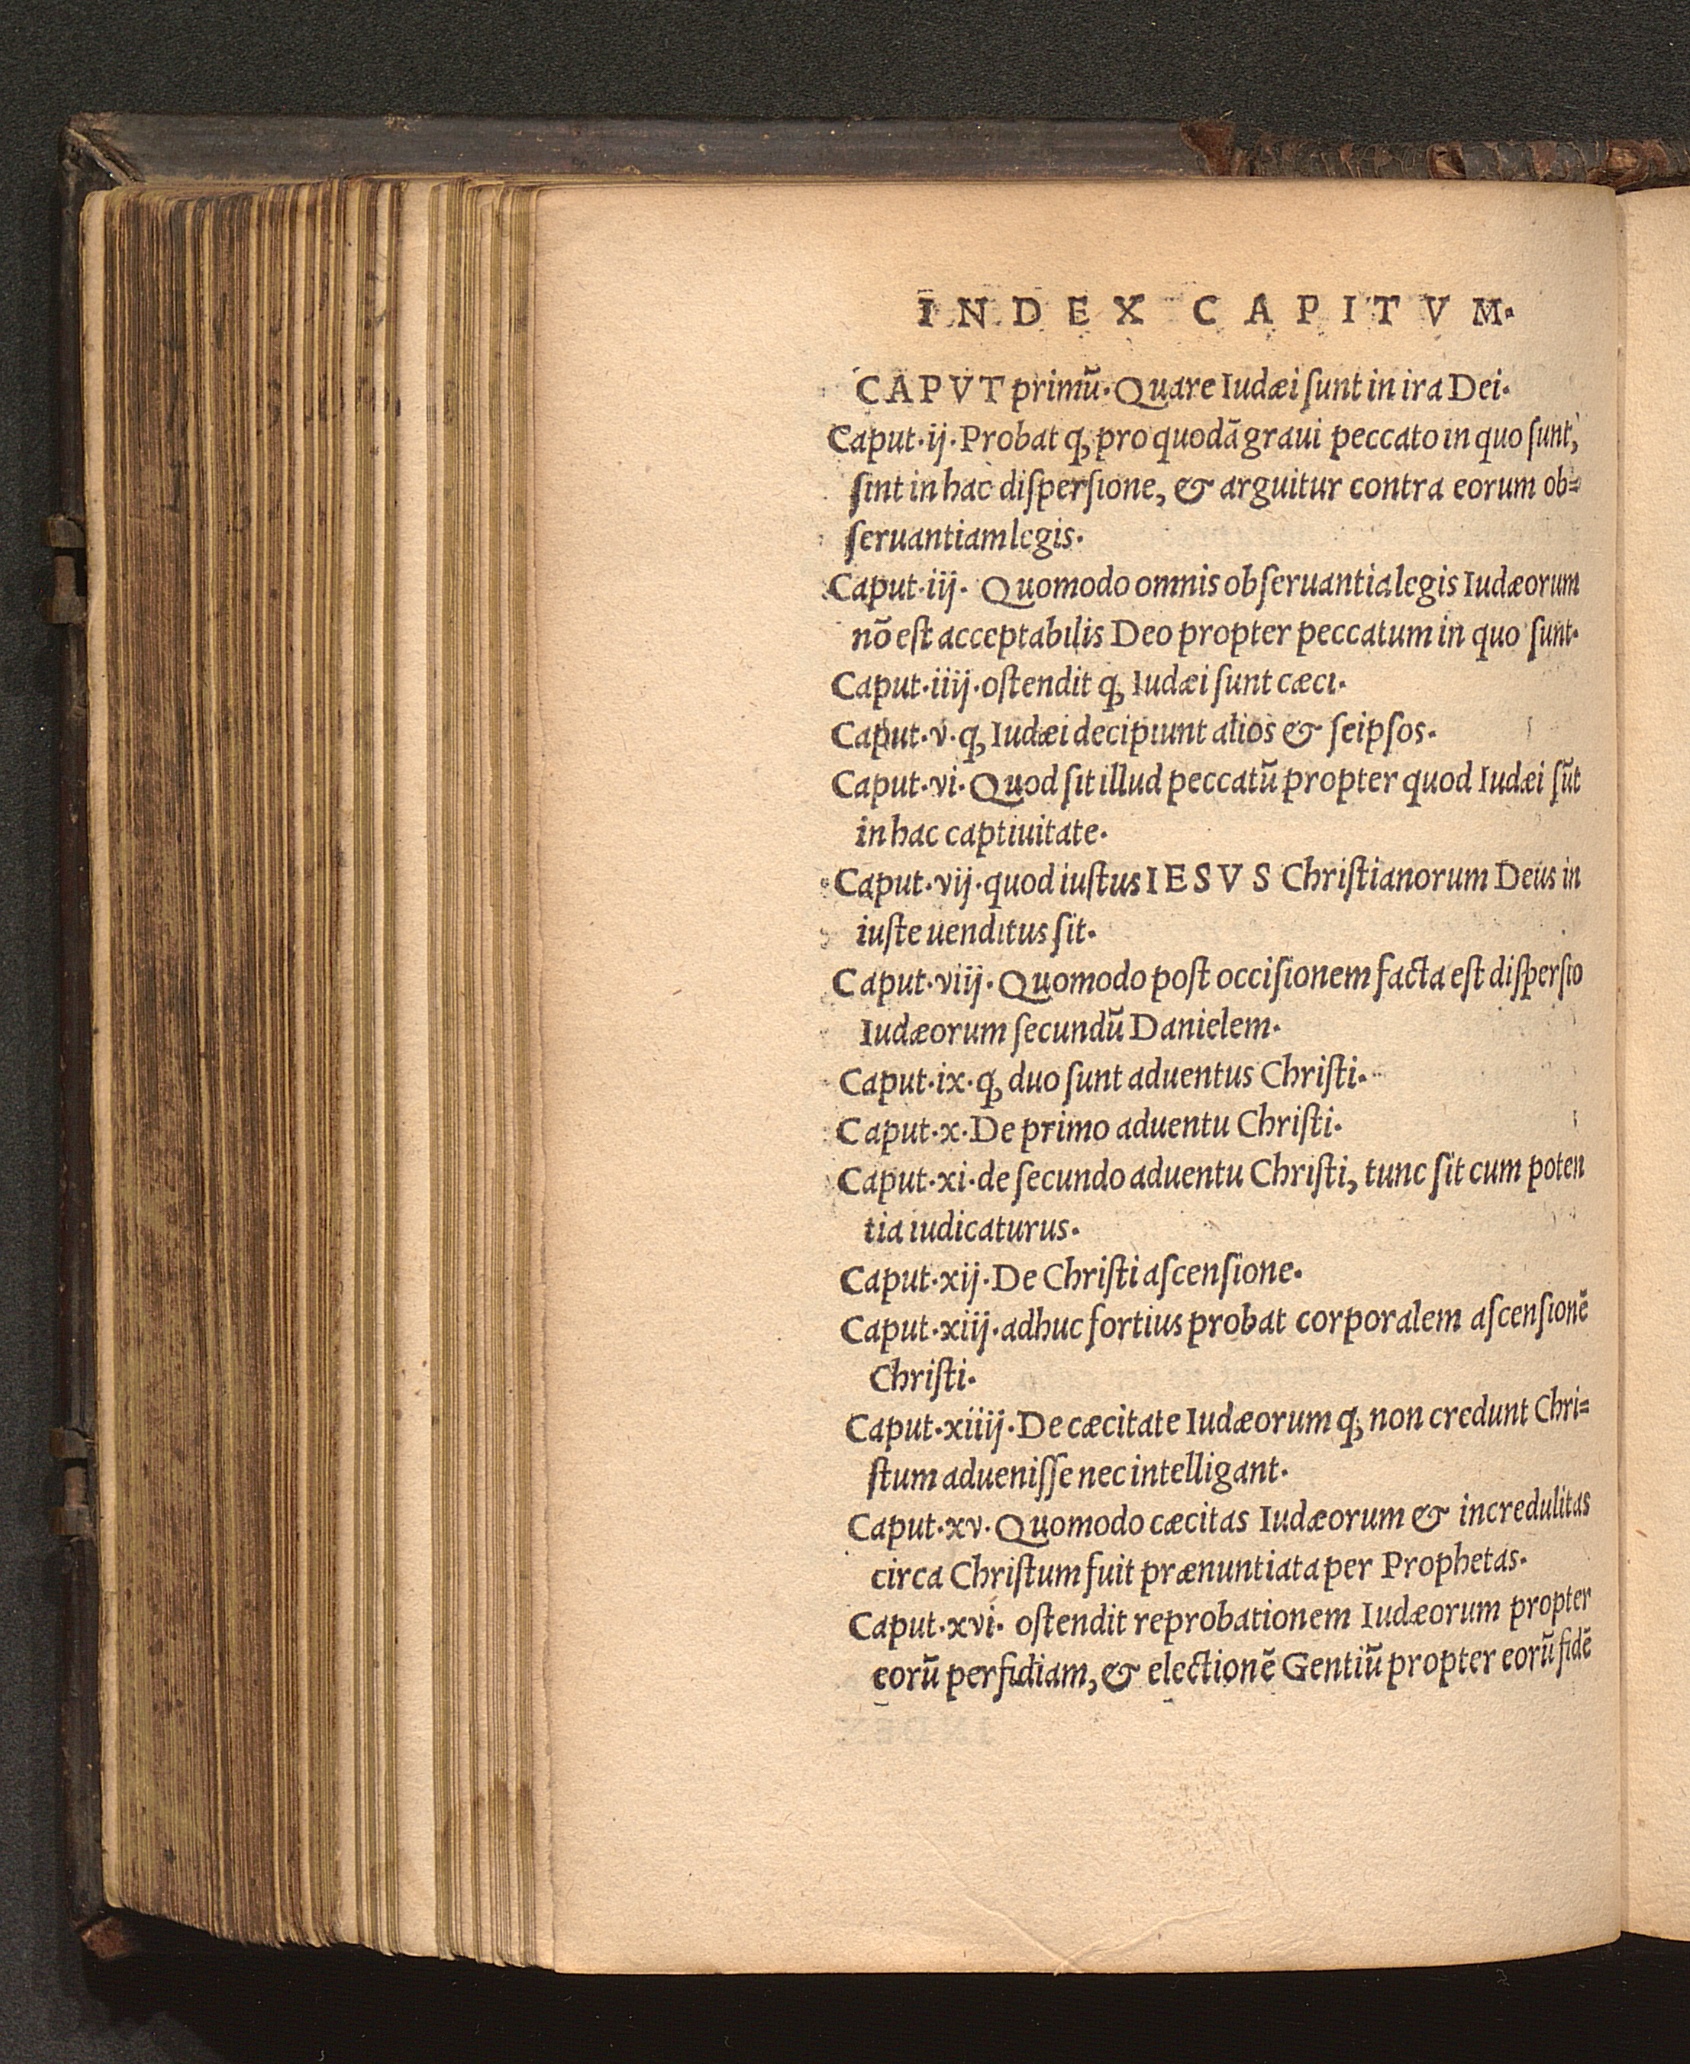 INDEX CAPITVM.
CAPVT primū. Quare Iudæi ſunt in ira Dei.
Caput.ij. Probat ꝙ pro quodā graui peccato in quo ſunt,
ſint in hac diſperſione, & arguitur contra eorum ob=
ſeruantiam legis.
Caput.iij. Quomodo omnis obſeruantia legis Iudæorum
nō eſt acceptabilis Deo propter peccatum in quo ſunt.
Caput.iiij. oſtendit ꝙ Iudæi ſunt cæci.
Caput.v. ꝙ Iudæi decipiunt alios & ſeipſos.
Caput.vi. Quod ſit illud peccatū propter quod Iudæi ſūt
in hac captiuitate.
Caput.vij. quod iuſtus IESVS Chriſtianorum Deus in
iuſte uenditus ſit.
Caput.viij. Quomodo poſt occiſionem facta eſt diſperſio
Iudæorum ſecundū Danielem.
Caput.ix. ꝙ duo ſunt aduentus Chriſti.
Caput.x. De primo aduentu Chriſti.
Caput.xi. de ſecundo aduentu Chriſti, tunc ſit cum poten
tia iudicaturus.
Caput.xij. De Chriſti aſcenſione.
Caput.xiij. adhuc fortius probat corporalem aſcenſionē
Chriſti.
Caput.xiiij. De cæcitate Iudæorum ꝙ non credunt Chri=
ſtum adueniſſe nec intelligant.
Caput.xv. Quomodo cæcitas Iudæorum & incredulitas
circa Chriſtum fuit prænuntiata per Prophetas.
Caput.xvi. oſtendit reprobationem Iudæorum propter
eorū perfidiam, & electionē Gentiū propter eorū fidē